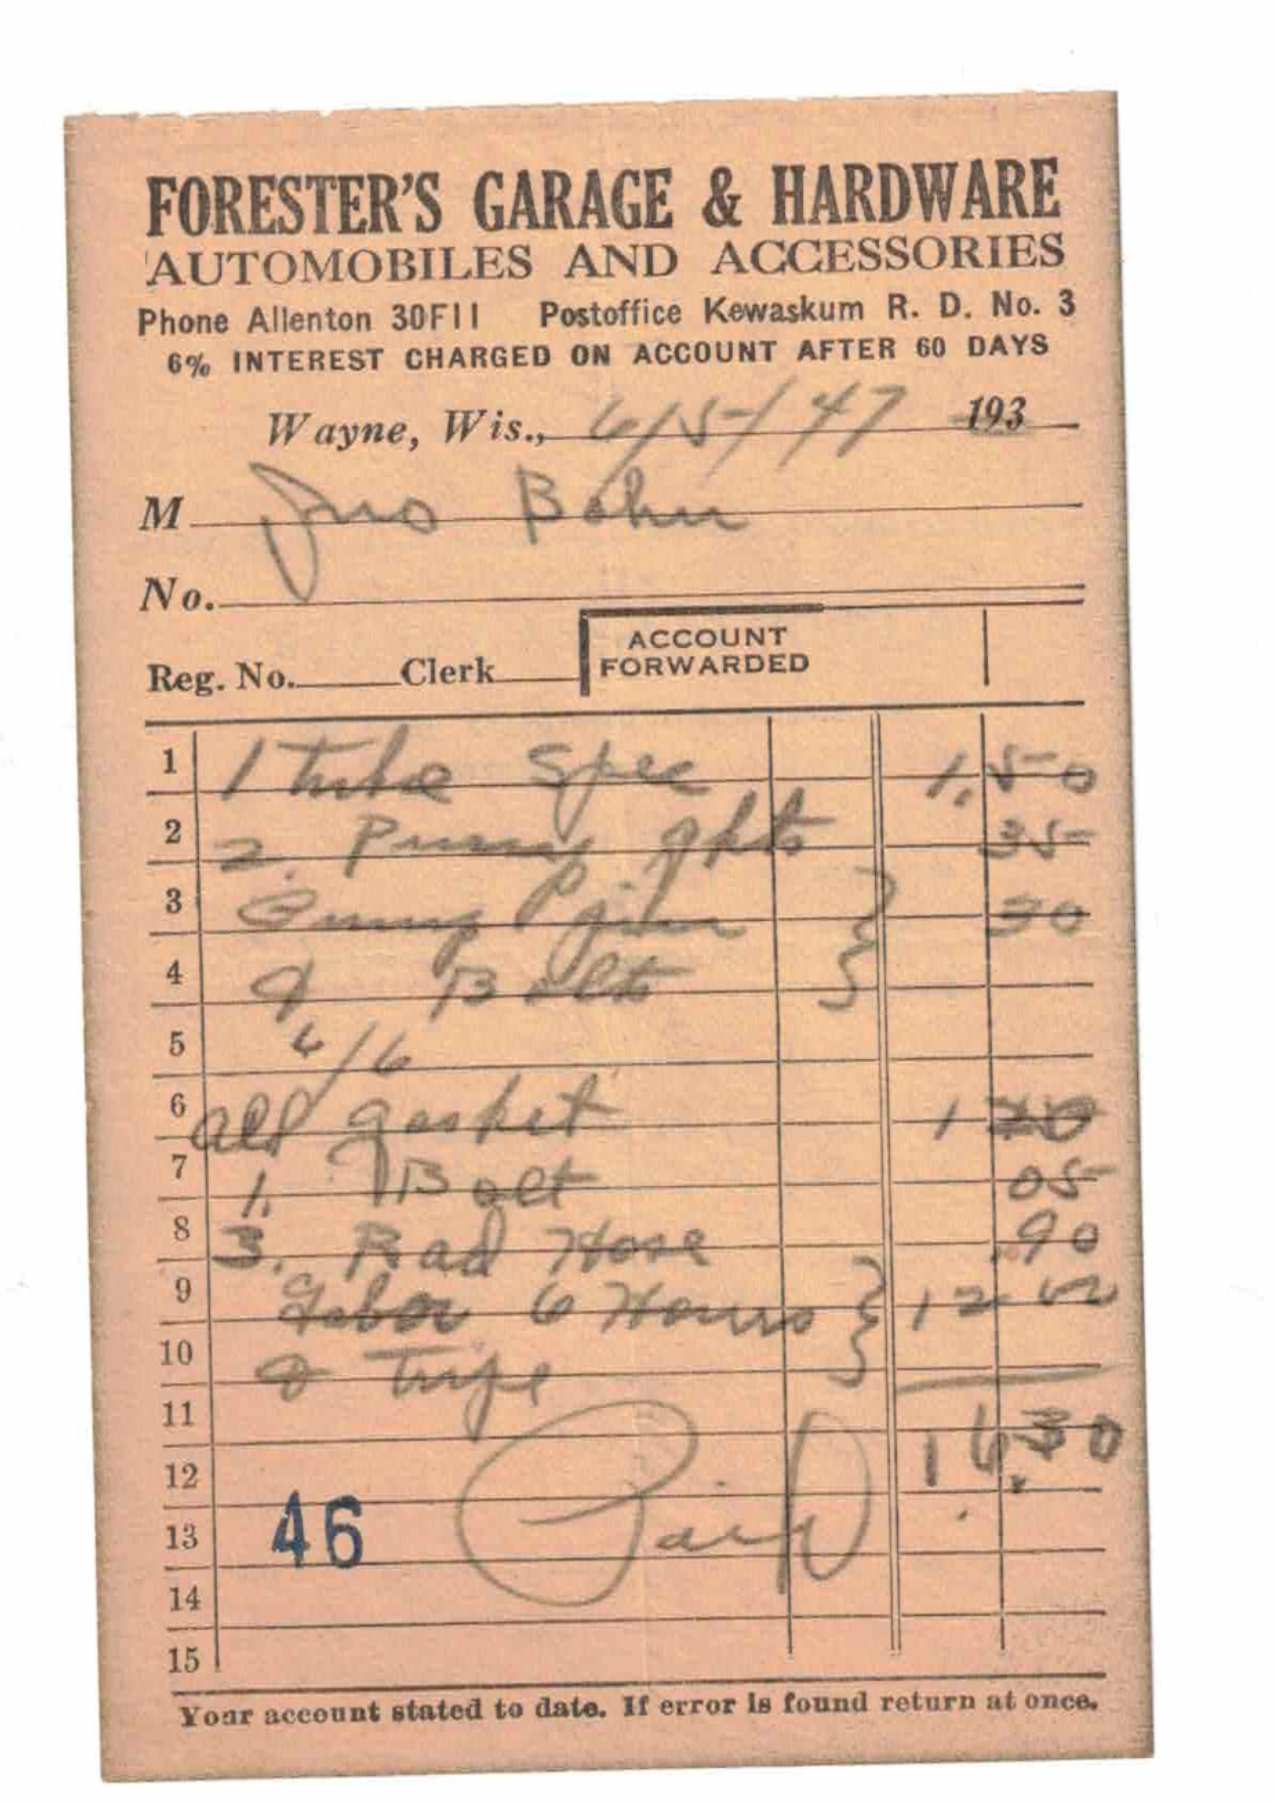 FORESTER'S GARAGE & HARDWARE
AUTOMOBILES AND ACCESSORIES
Phone Allenton 30F11 Postoffice Kewaskum R. D. No. 3
6% INTEREST CHARGED ON ACCOUNT AFTER 60 DAYS
Wayne, Wis., 6/5/47 193
M Jno Bohn
No.
Reg. No. Clerk ACCOUNT FORWARDED
1 1 tube Spec 1.50
2 2. Pump gkts 35
3 Pump 30
4 & Bolts
5 6/6
6 gasket 1 20
7 1. Bolt 05
8 3. Rad Hose .90
9 Labor 6 Hours 12 00
10 &
11 16.30
12
13 46 Paid
14
15
Your account stated to date. If error is found return at once.